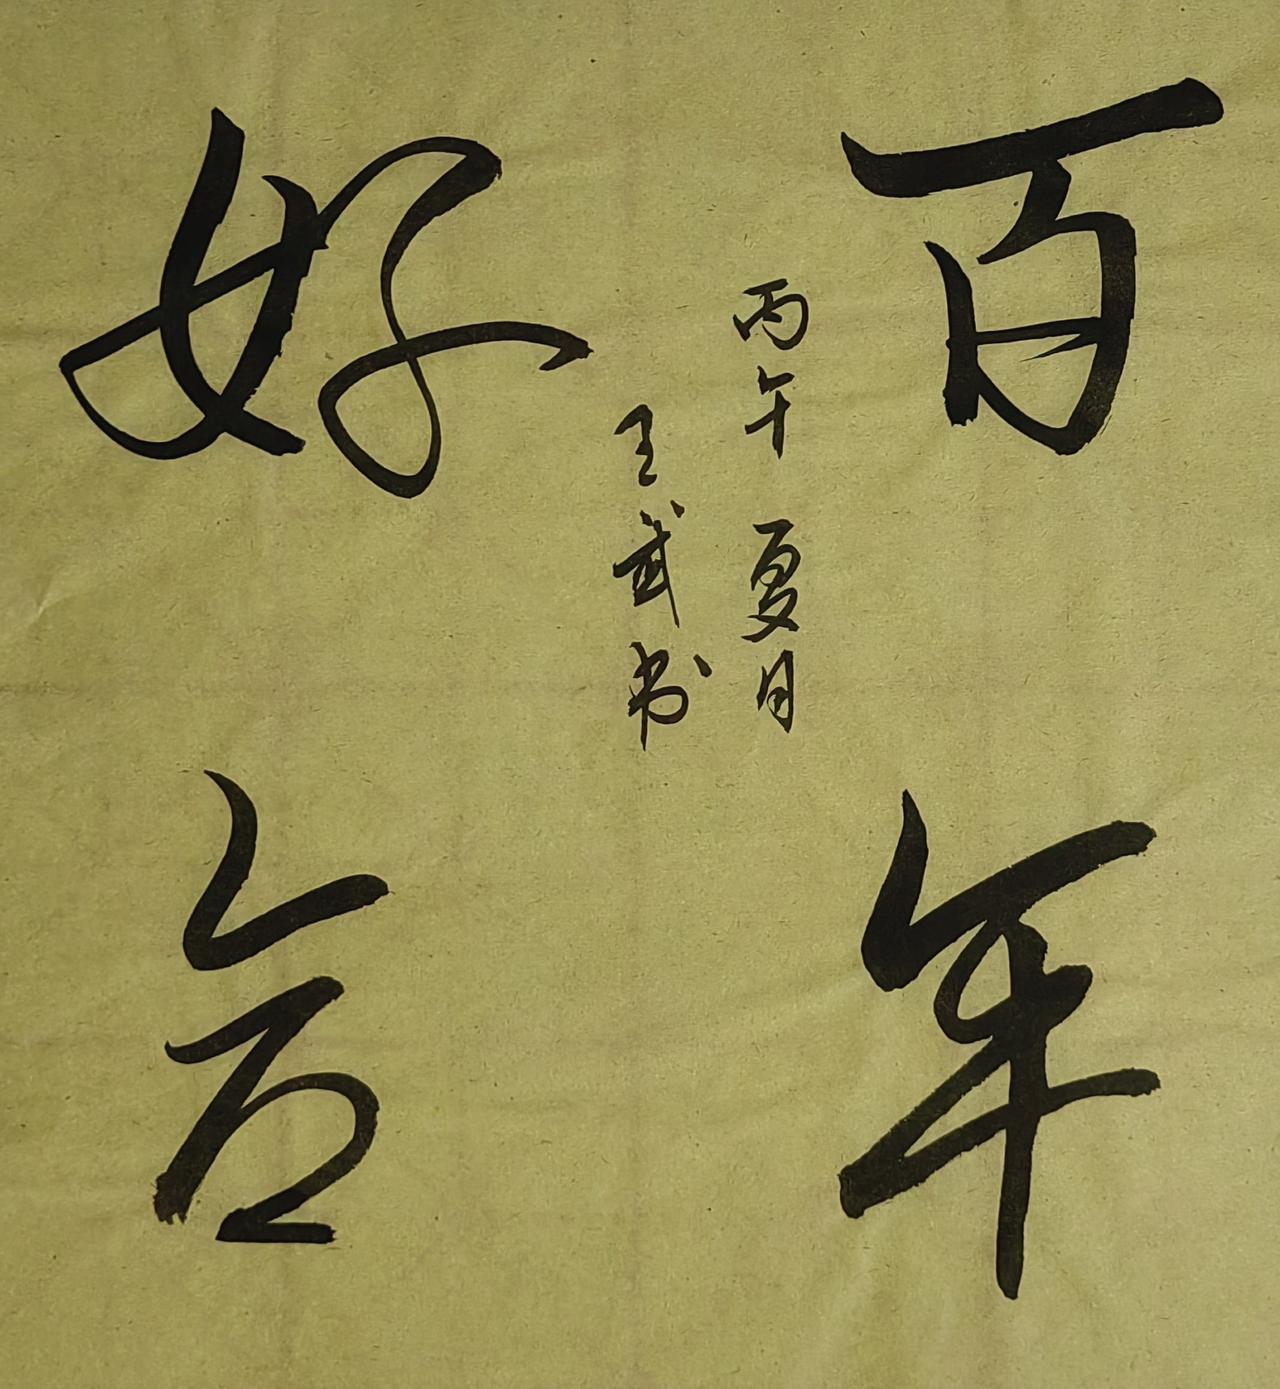 百年
好合
丙午夏月
王武书